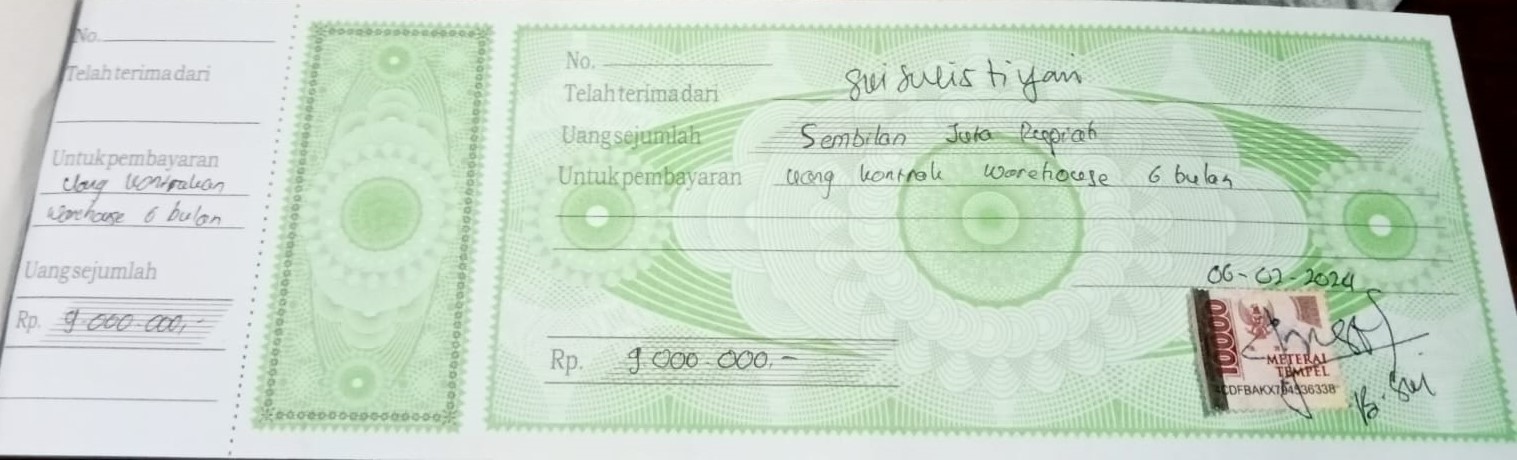 No.
Telah terima dari
Untuk pembayaran
Uang kontrakan
warehouse 6 bulan
Uang sejumlah
Rp. 9.000.000,-
No.
Telah terima dari Sri Sulistiyani
Uang sejumlah Sembilan Juta Rupiah
Untuk pembayaran uang kontrak warehouse 6 bulan
06-02-2024
Rp. 9.000.000,-
10000
METERAI
TEMPEL
B. Sri